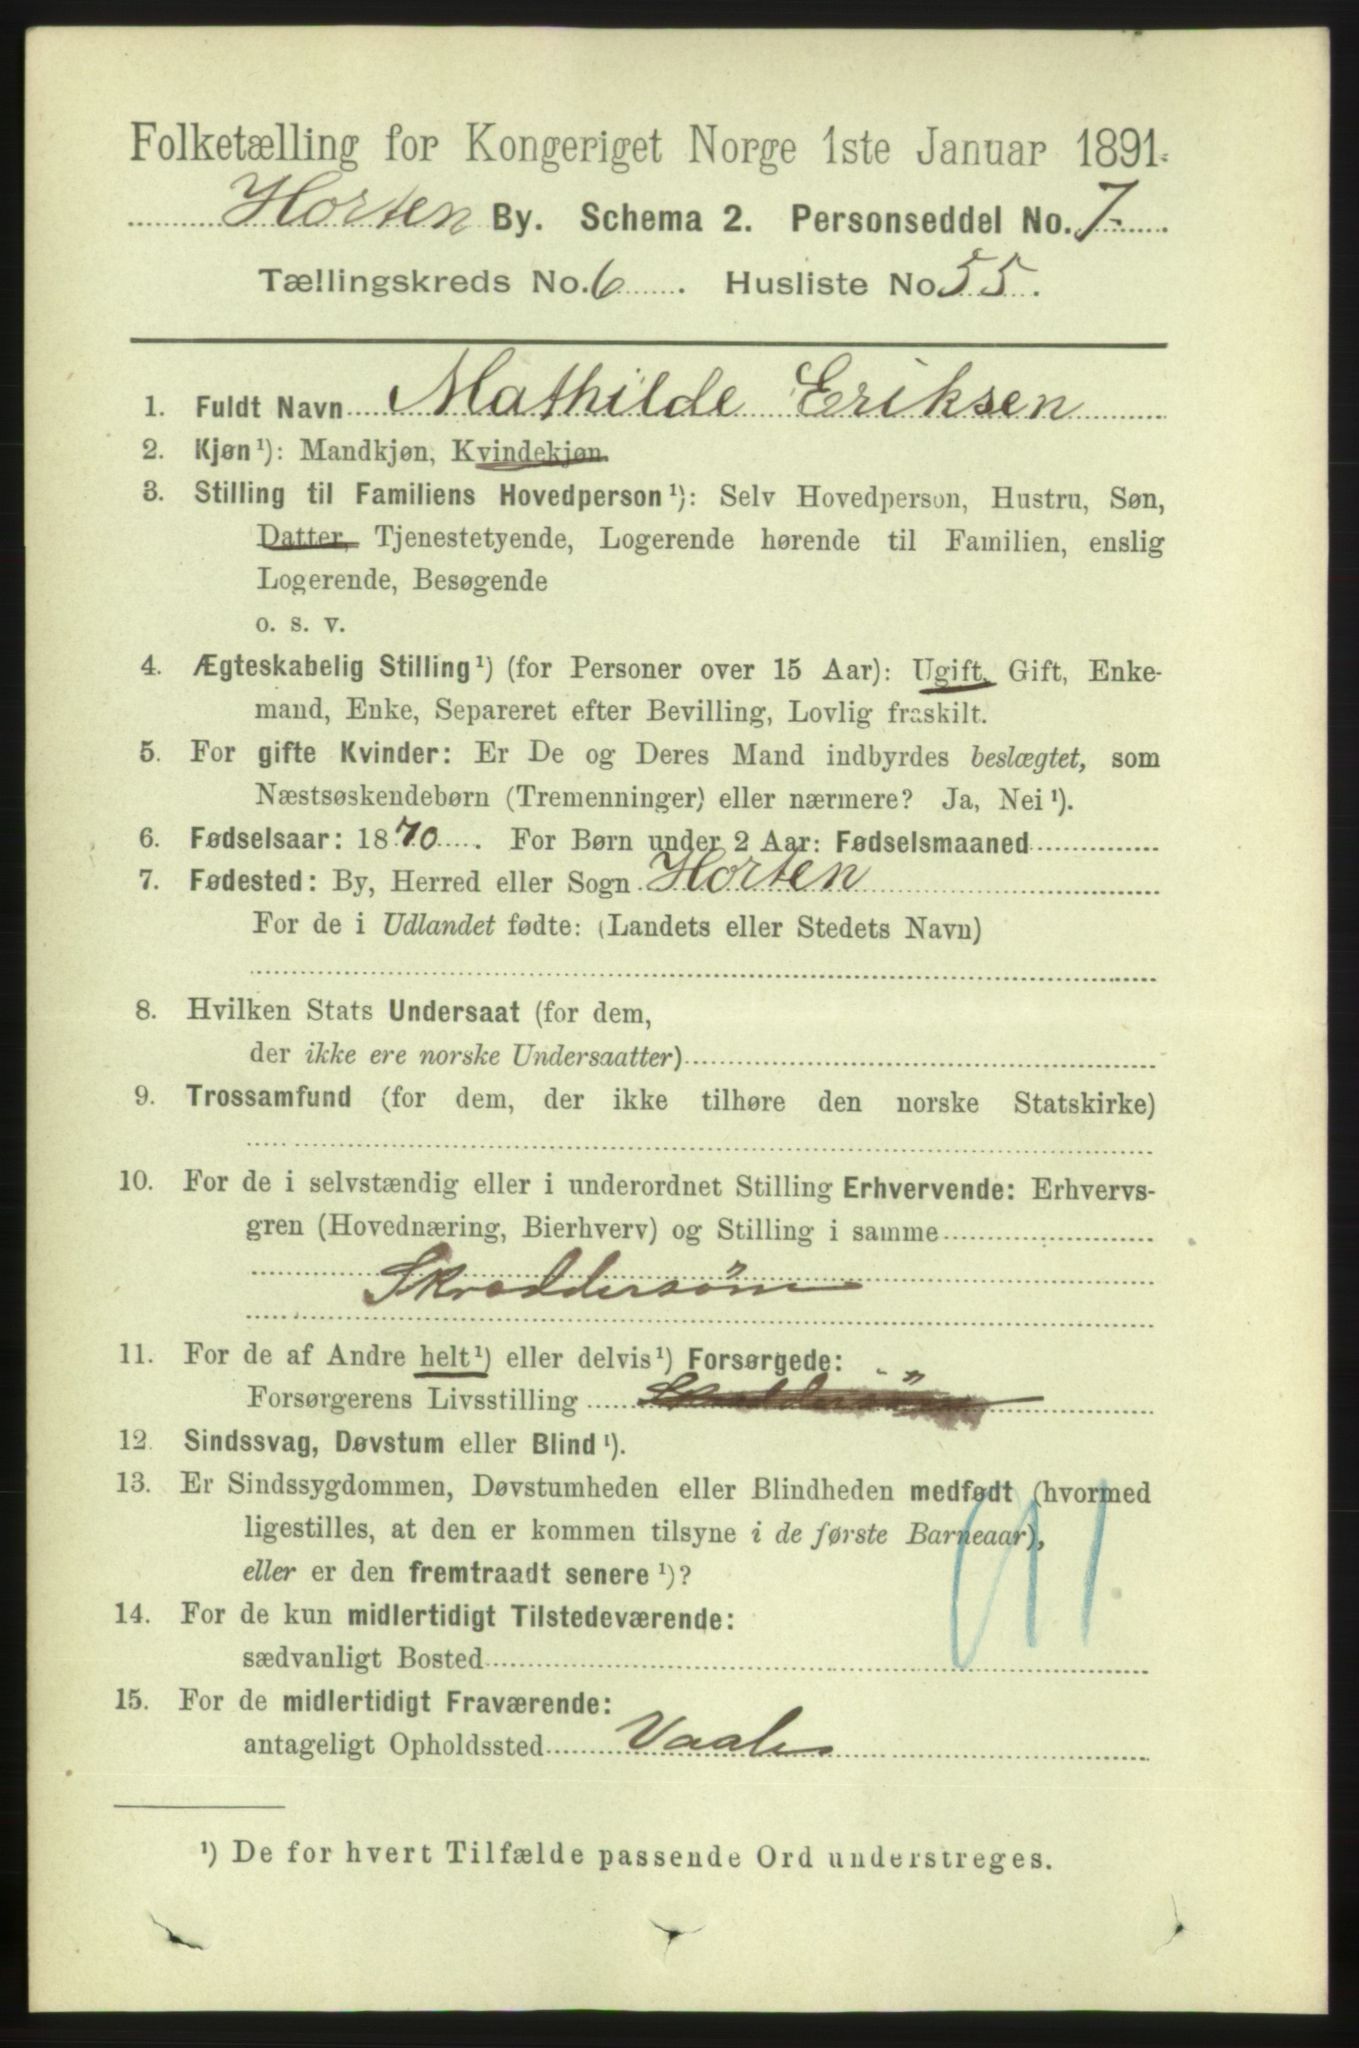 Folketælling for Kongeriget Norge 1ste Januar 1891.
Horten By. Schema 2. Personseddel No. 7.
Tællingskreds No. 6. Husliste No 55.
1. Fuldt Navn Mathilde Eriksen
2. Kjøn¹): Mandkjøn, Kvindekjøn.
3. Stilling til Familiens Hovedperson¹): Selv Hovedperson, Hustru, Søn,
Datter, Tjenestetyende, Logerende hørende til Familien, enslig
Logerende, Besøgende
o. s. v.
4. Ægteskabelig Stilling¹) (for Personer over 15 Aar): Ugift, Gift, Enke-
mand, Enke, Separeret efter Bevilling, Lovlig fraskilt.
5. For gifte Kvinder: Er De og Deres Mand indbyrdes beslægtet, som
Næstsøskendebørn (Tremenninger) eller nærmere? Ja, Nei¹).
6. Fødselsaar: 1870. For Børn under 2 Aar: Fødselsmaaned
7. Fødested: By, Herred eller Sogn Horten
For de i Udlandet fødte: (Landets eller Stedets Navn)
8. Hvilken Stats Undersaat (for dem,
der ikke ere norske Undersaatter)
9. Trossamfund (for dem, der ikke tilhøre den norske Statskirke)
10. For de i selvstændig eller i underordnet Stilling Erhvervende: Erhvervs-
gren (Hovednæring, Bierhverv) og Stilling i samme
Skræddersøm
11. For de af Andre helt¹) eller delvis¹) Forsørgede:
Forsørgerens Livsstilling
12. Sindssvag, Døvstum eller Blind¹).
13. Er Sindssygdommen, Døvstumheden eller Blindheden medfødt (hvormed
ligestilles, at den er kommen tilsyne i de første Barneaar),
eller er den fremtraadt senere¹)?
14. For de kun midlertidigt Tilstedeværende:
sædvanligt Bosted
15. For de midlertidigt Fraværende:
antageligt Opholdssted Vaale
¹) De for hvert Tilfælde passende Ord understreges.